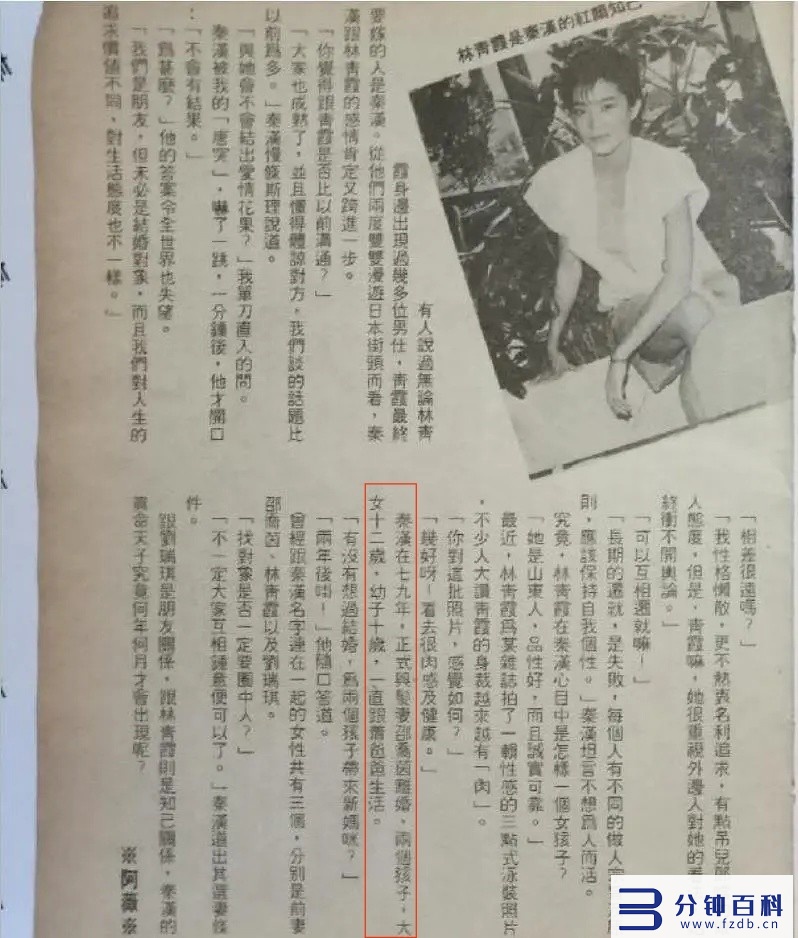 林青霞是秦漢的紅顏知己
有人說過無論林青
霞身邊出現過幾多位男仕，青霞最終
要嫁的人是秦漢。從他們兩度雙雙漫遊日本街頭而看，秦
漢跟林青霞的感情肯定又跨進一步。
「你覺得跟青霞是否比以前溝通？」
「大家也成熟了，並且懂得體諒對方，我們談的話題比
以前爲多。」秦漢慢條斯理說道。
「與她會不會結出愛情花果？」我單刀直入的問。
秦漢被我的「唐突」，嚇了一跳，一分鐘後，他才開口
：
「不會有結果。」
「爲甚麼？」他的答案令全世界也失望。
「我們是朋友，但未必是結婚對象，而且我們對人生的
追求價値不同，對生活態度也不一樣。」
「相差很遠嗎？」
「我性格懶散，更不熱衷名利追求，有點吊兒
人態度，但是，青霞嘛，她很重視外邊人對她的
終衝不開輿論。」
「可以互相遷就嘛！」
「長期的遷就，是失敗，每個人有不同的做人
則，應該保持自我個性。」秦漢坦言不想爲人而活。
究竟，林青霞在秦漢心目中是怎樣一個女孩子？
「她是山東人，品性好，而且誠實可靠。」
最近，林青霞爲某雜誌拍了一輯性感的三點式泳裝照片
，不少人大讚青霞的身裁越來越有「肉」。
「你對這批照片，感覺如何？」
「幾好呀！看去很肉感及健康。」
秦漢在七九年，正式與髮妻邵喬茵離婚，兩個孩子，大
女十二歲，幼子十歲，一直跟蕭爸爸生活。
「有沒有想過結婚，爲兩個孩子帶來新媽咪？」
「兩年後啩！」他隨口答道。
曾經跟秦漢名字連在一起的女性共有三個，分別是前妻
邵喬茵、林青霞以及劉瑞琪。
「找對象是否一定要圈中人？」
「不一定大家互相鍾意便可以了。」秦漢道出其選妻條
件。
跟劉瑞琪是朋友關係，跟林青霞則是知己關係，秦漢的
眞命天子究竟何年何月才會出現呢？
※阿薇※
3分钟百科
www.fzdb.cn